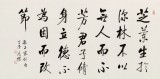 芝蘭生於
深林不以
無人而不
芳君子修
身立德不
為困而改
節